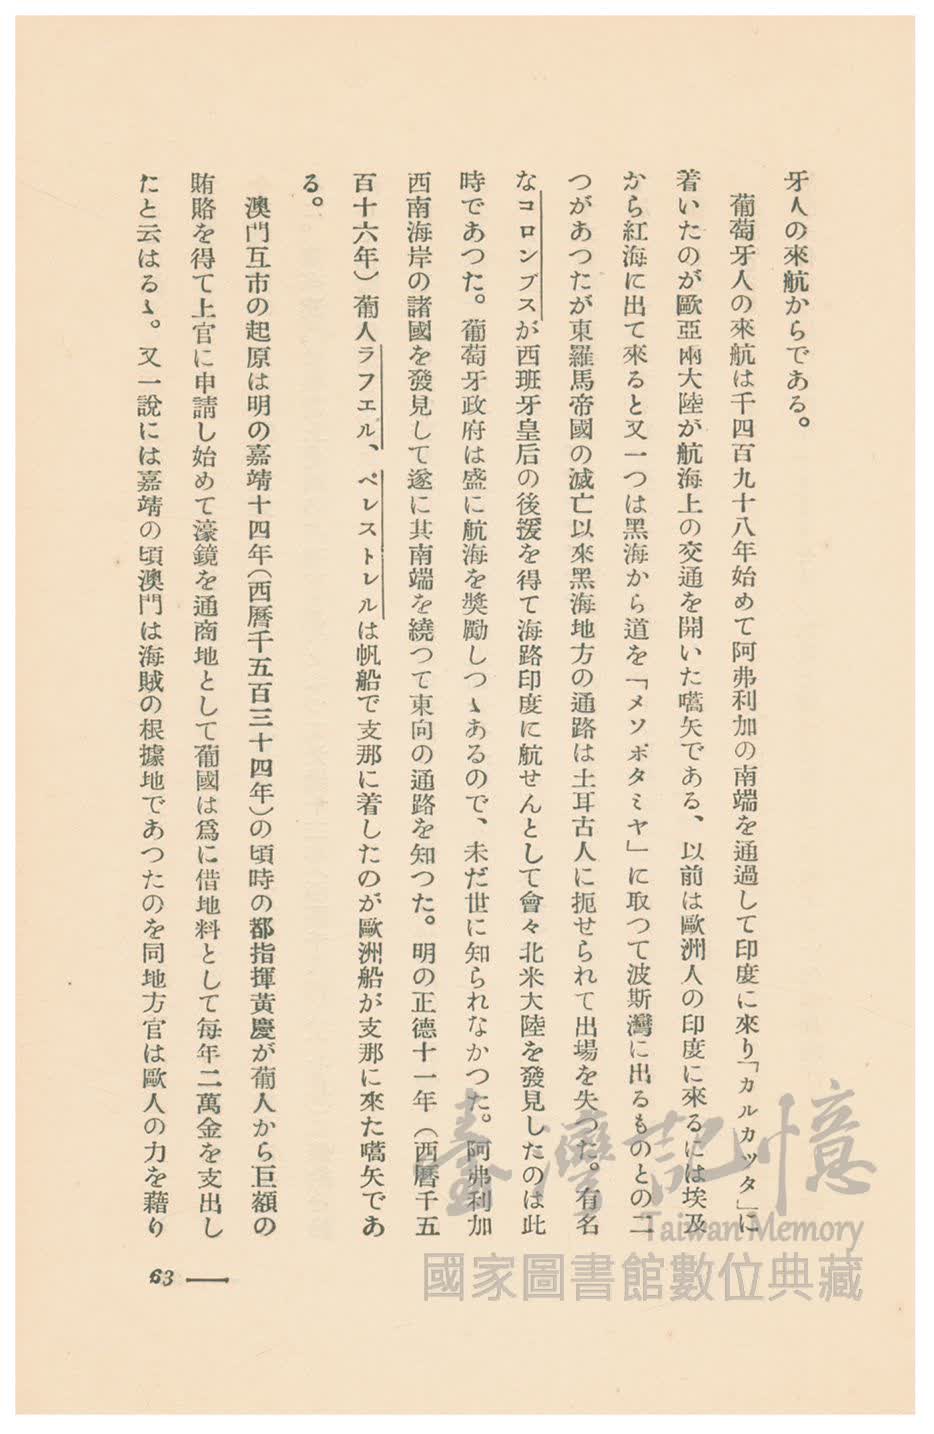 牙人の來航からである。
葡萄牙人の來航は千四百九十八年始めて阿弗利加の南端を通過して印度に來り「カルカッタ」に
着いたのが歐亞兩大陸が航海上の交通を開いた嚆矢である、以前は歐洲人の印度に來るには埃及
から紅海に出て來ると又一つは黑海から道を「メソポタミヤ」に取つて波斯灣に出るものとの二
つがあつたが東羅馬帝國の滅亡以來黑海地方の通路は土耳古人に扼せられて出場を失つた。有名
なコロンブスが西班牙皇后の後援を得て海路印度に航せんとして會々北米大陸を發見したのは此
時であつた。葡萄牙政府は盛に航海を奬勵しつゝあるので、未だ世に知られなかつた。阿弗利加
西南海岸の諸國を發見して遂に其南端を繞つて東向の通路を知つた。明の正德十一年（西曆千五
百十六年）葡人ラフエル、ペレストレルは帆船で支那に着したのが歐洲船が支那に來た嚆矢であ
る。
澳門互市の起原は明の嘉靖十四年（西曆千五百三十四年）の頃時の都指揮黃慶が葡人から巨額の
賄賂を得て上官に申請し始めて濠鏡を通商地として葡國は爲に借地料として每年二萬金を支出し
たと云はるゝ。又一說には嘉靖の頃澳門は海賊の根據地であつたのを同地方官は歐人の力を藉り
63
臺灣記憶
Taiwan Memory
國家圖書館數位典藏